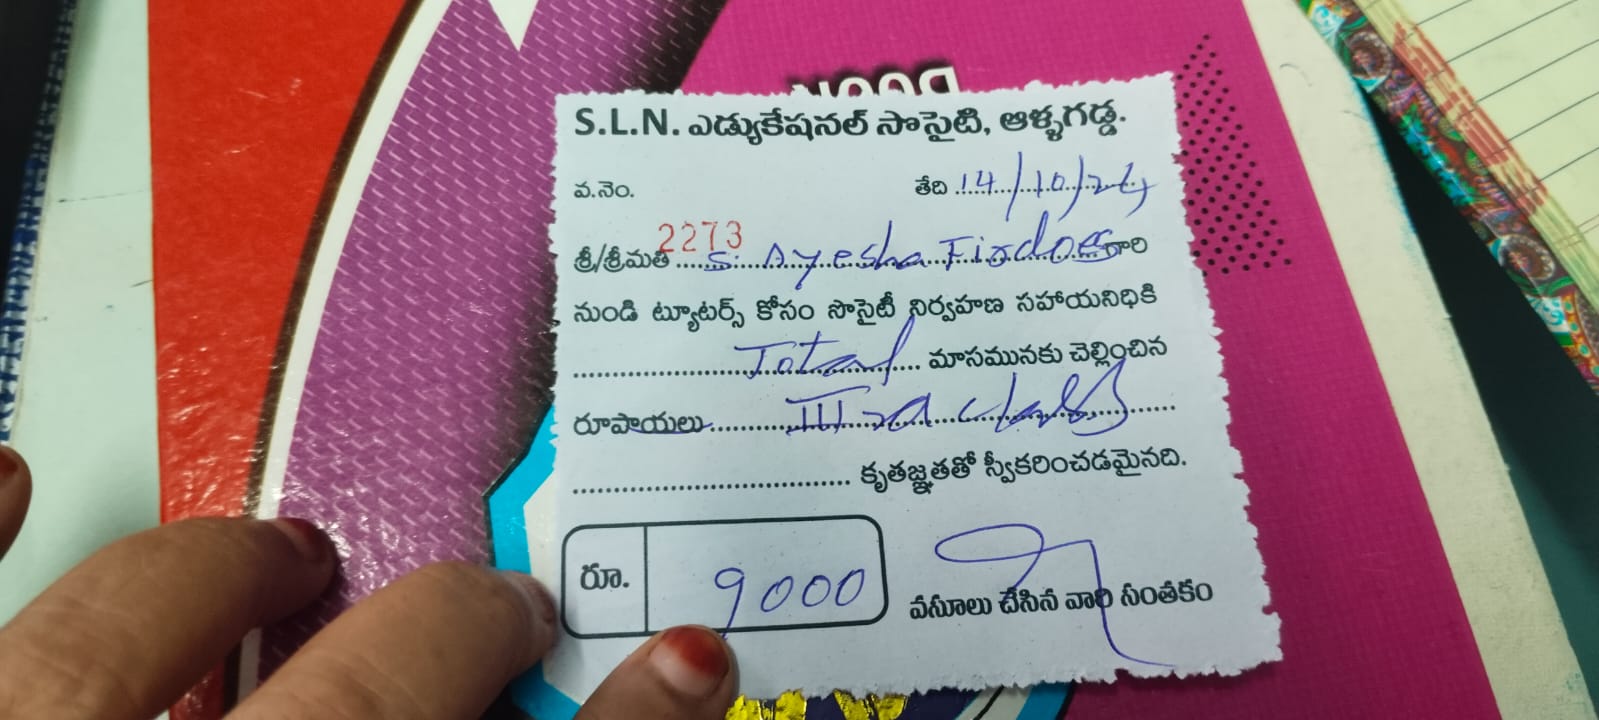 S.L.N. ఎడ్యుకేషనల్ సొసైటి, ఆళ్ళగడ్డ.
వ.నెం. తేది 14/10/24
2273
శ్రీ/శ్రీమతి S. Ayesha Firdos గారి
నుండి ట్యూటర్స్ కోసం సొసైటీ నిర్వహణ సహాయనిధికి
Total మాసమునకు చెల్లించిన
రూపాయలు IIIrd class
కృతజ్ఞతతో స్వీకరించడమైనది.
రూ. 9000
వసూలు చేసిన వారి సంతకం